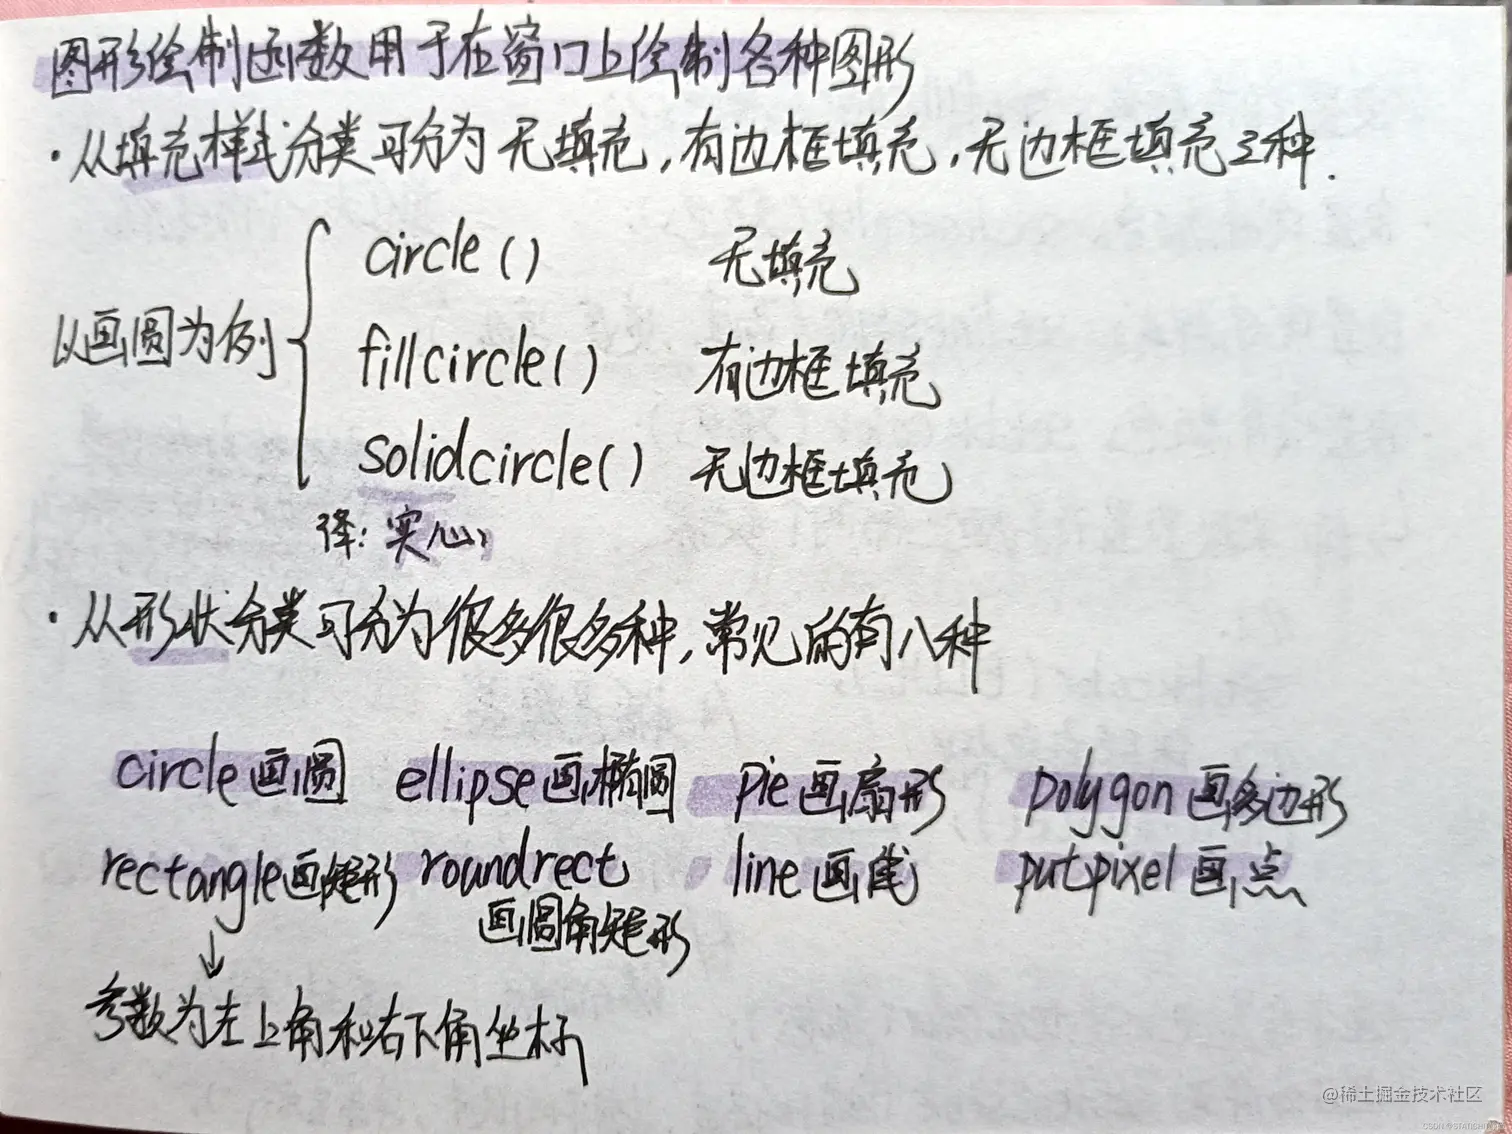 图形绘制函数用于在窗口上绘制各种图形
·从填充样式分类可分为无填充,有边框填充,无边框填充三种.
circle() 无填充
以画圆为例 fillcircle() 有边框填充
solidcircle() 无边框填充
译:实心
·从形状分类可分为很多很多种,常见的有八种
circle画圆 ellipse画椭圆 pie画扇形 polygon画多边形
rectangle画矩形 roundrect line画线 putpixel画点
画圆角矩形
↓
参数为左上角和右下角坐标
@稀土掘金技术社区